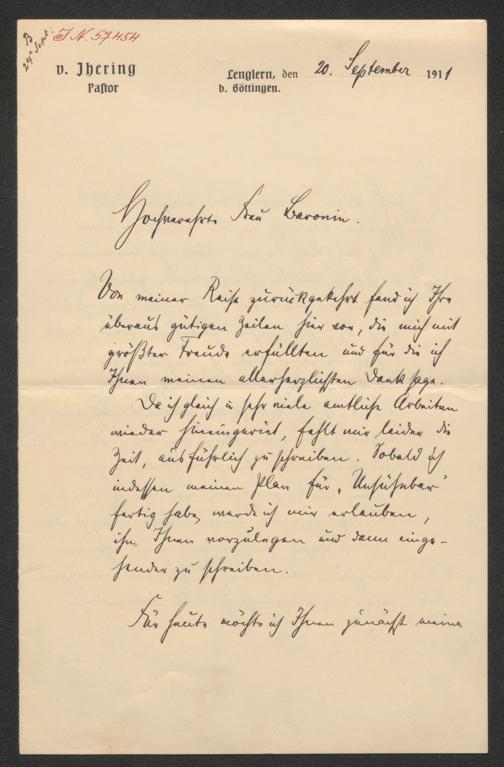 B
24 Sept:
I. N. 57454
v. Jhering
Pastor
Lenglern, den 20. September 1911
b. Göttingen.
Hochverehrte Frau Baronin.
Von meiner Reise zurückgekehrt fand ich Ihre
überaus gütigen Zeilen hier vor, die mich mit
größter Freude erfüllten und für die ich
Ihnen meinen allerherzlichsten Dank sage.
Da ich gleich in sehr viele amtliche Arbeiten
wieder hineingeriet, fehlt mir leider die
Zeit, ausführlich zu schreiben. Sobald ich
indessen meinen Plan für „Unsühnbar"
fertig habe, werde ich mir erlauben,
ihn Ihnen vorzulegen und dann einge-
hender zu schreiben.
Für heute möchte ich Ihnen zunächst meine